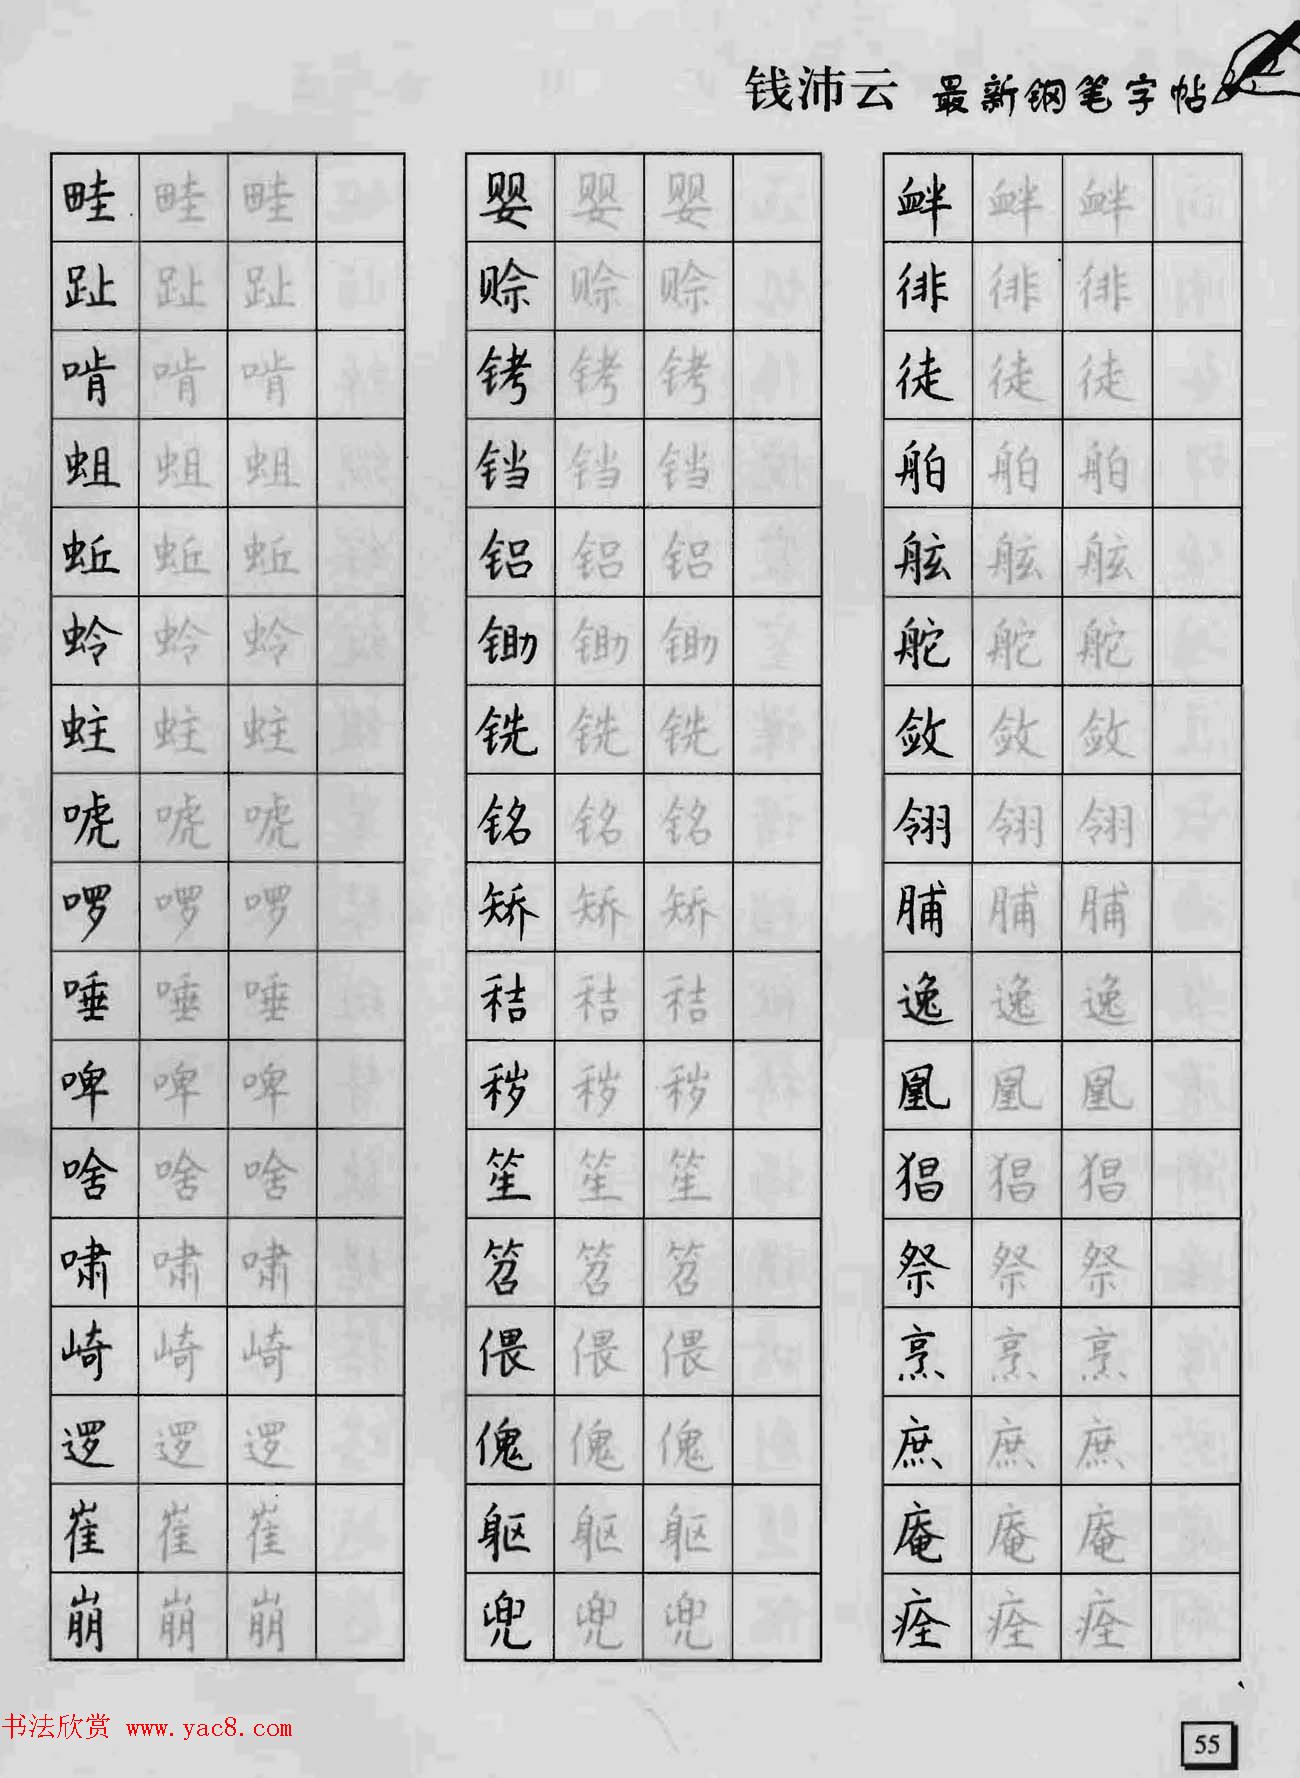 钱沛云 最新钢笔字帖
畦 畦 畦 婴 婴 婴 衅 衅 衅
趾 趾 趾 赊 赊 赊 徘 徘 徘
啃 啃 啃 铐 铐 铐 徒 徒 徒
蛆 蛆 蛆 铛 铛 铛 舶 舶 舶
蚯 蚯 蚯 铝 铝 铝 舷 舷 舷
蛉 蛉 蛉 锄 锄 锄 舵 舵 舵
蛀 蛀 蛀 铣 铣 铣 敛 敛 敛
唬 唬 唬 铭 铭 铭 翎 翎 翎
啰 啰 啰 矫 矫 矫 脯 脯 脯
唾 唾 唾 秸 秸 秸 逸 逸 逸
啤 啤 啤 秽 秽 秽 凰 凰 凰
啥 啥 啥 笙 笙 笙 猖 猖 猖
啸 啸 啸 笤 笤 笤 祭 祭 祭
崎 崎 崎 偎 偎 偎 烹 烹 烹
逻 逻 逻 傀 傀 傀 庶 庶 庶
崔 崔 崔 躯 躯 躯 庵 庵 庵
崩 崩 崩 兜 兜 兜 痊 痊 痊
书法欣赏 www.yac8.com
55